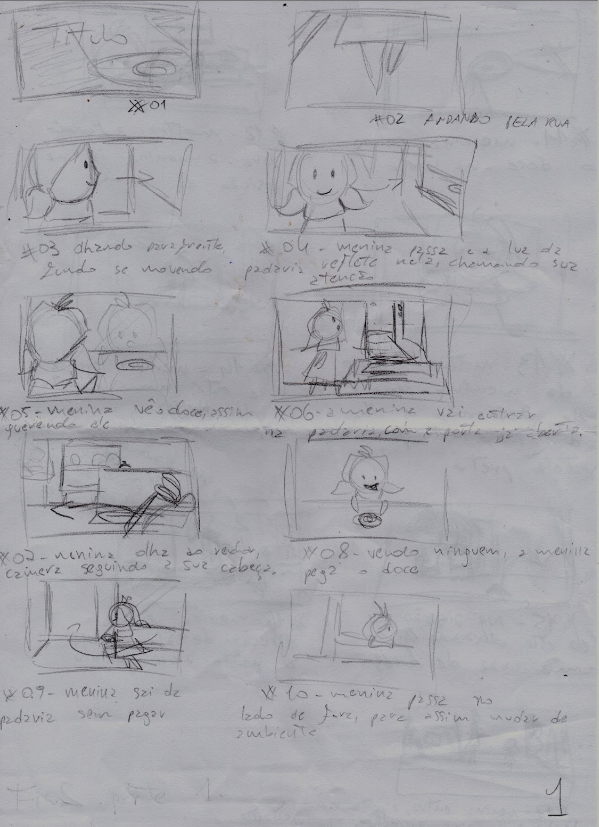 Titulo
#01
#02 ANDANDO PELA RUA
#03 olhando para frente
fundo se movendo
#04 - menina passa e a luz da
padaria reflete nela, chamando sua
atenção
#05 - menina vê o doce, assim
querendo ele
#06 - a menina vai entrar
na padaria, com a porta já aberta.
#07 - menina olha ao redor,
câmera seguindo a sua cabeça.
#08 - vendo ninguem, a menina
pega o doce
#09 - menina sai da
padaria sem pagar
#10 - menina passa no
lado de fora, para assim mudar de
ambiente
1